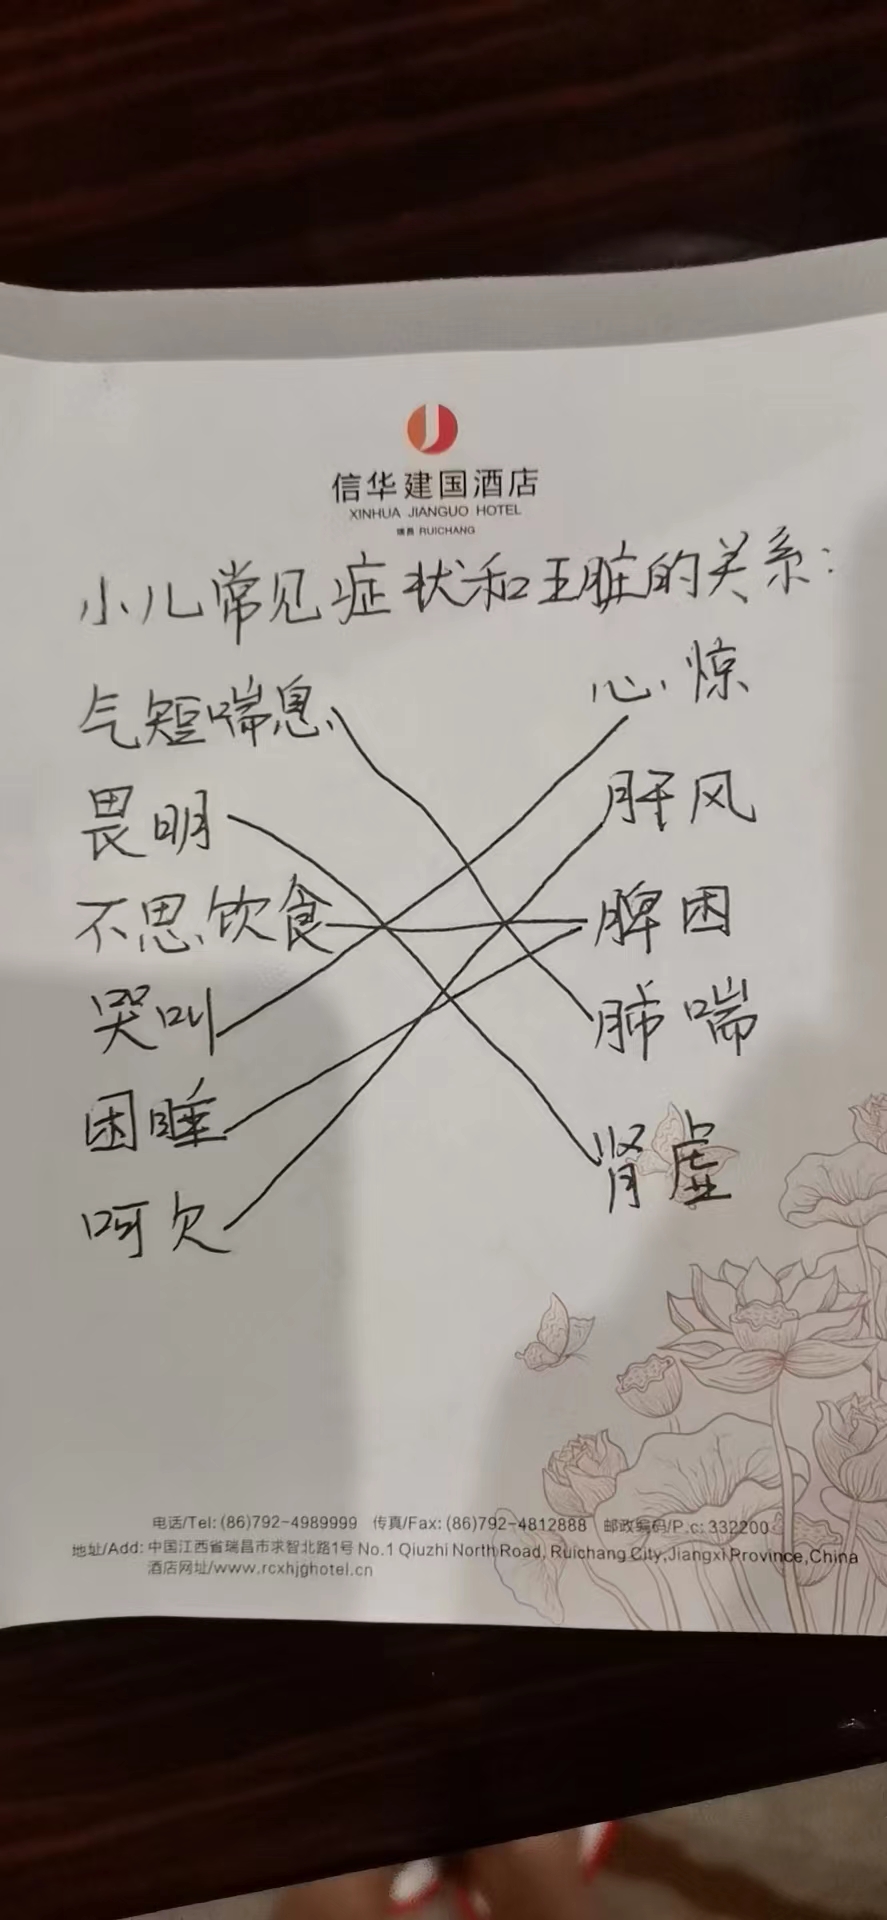 信华建国酒店
XINHUA JIANGUO HOTEL
瑞昌 RUICHANG
小儿常见症状和五脏的关系：
气短喘息 心惊
畏明 肝风
不思饮食 脾困
哭叫 肺喘
困睡 肾虚
呵欠
电话/Tel: (86)792-4989999 传真/Fax: (86)792-4812888 邮政编码/P.c: 332200
地址/Add: 中国江西省瑞昌市求智北路1号 No.1 Qiuzhi North Road, Ruichang City,Jiangxi Province,China
酒店网址/www.rcxhjghotel.cn